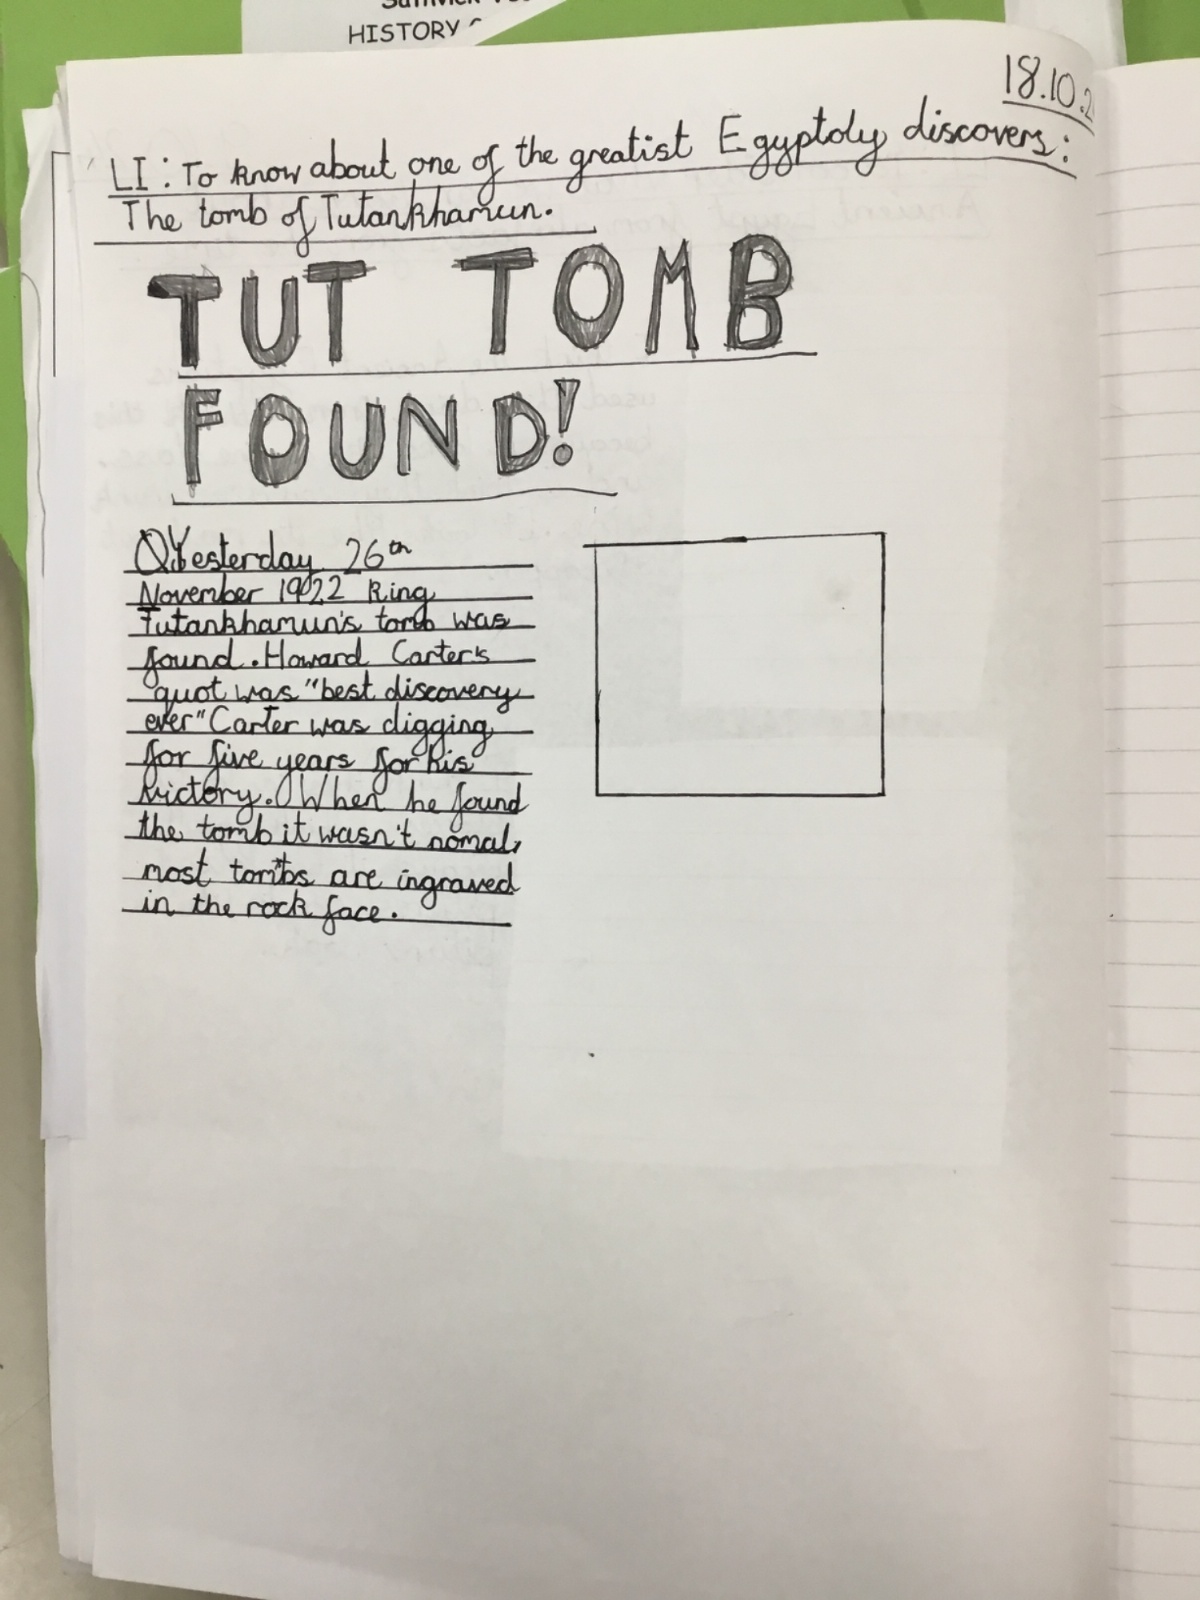 HISTORY
18.10.2
LI: To know about one of the greatist Egyptoly discovers:
The tomb of Tutankhamun.
TUT TOMB
FOUND!
Yesterday 26th
November 1922 King
Tutankhamun's tomb was
found. Howard Carter's
quot was "best discovery
ever" Carter was digging
for five years for his
victory. When he found
the tomb it wasn't nomal,
most tombs are ingraved
in the rock face.